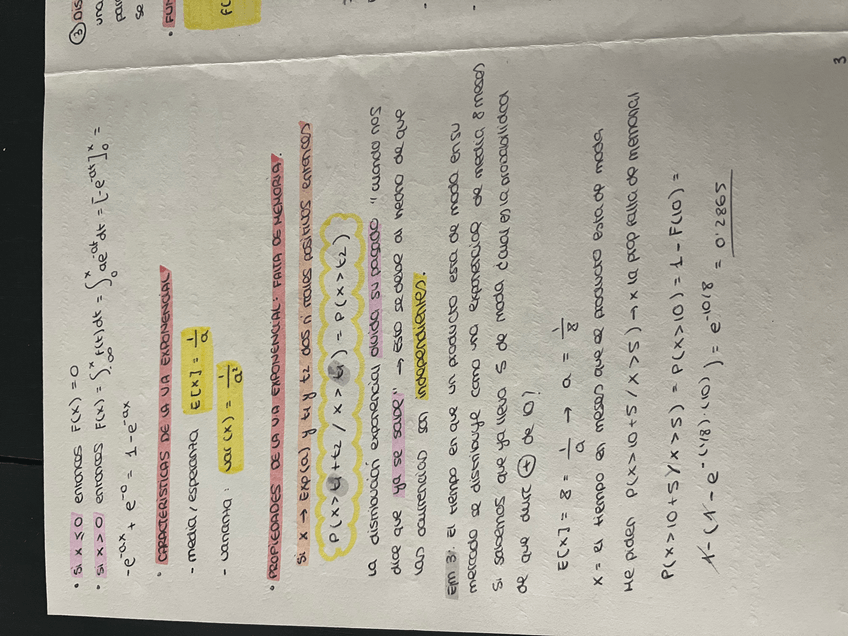 ③ DIS
una
par
se
• FUN
f(
• si x ≤ 0 entonces F(x) = 0
• si x > 0 entonces F(x) = ∫₋∞ˣ f(t) dt = ∫₀ˣ ae^-at dt = [-e^-at]₀ˣ =
-e^-ax + e^-0 = 1 - e^-ax
• CARACTERISTICAS DE LA VA EXPONENCIAL
- media / esperanza E[x] = 1/a
- varianza: var(x) = 1/a²
• PROPIEDADES DE LA VA EXPONENCIAL: FALTA DE MEMORIA.
si x → Exp(a) y t1 y t2 dos nº reales positivos entonces
P(x > t1 + t2 / x > t1) = P(x > t2)
La distribución exponencial olvida su pasado "cuando nos
dice que ya se sabe" → esto se debe al hecho de que
las ocurrencias son independientes.
Em 3: El tiempo en que un producto esta de moda en su
mercado se distribuye como una exponencial de media 8 meses
Si sabemos que ya lleva 5 de moda ¿cual es la probabilidad
de que dure (+) de 10?
E[x] = 8 = 1/a → a = 1/8
x = el tiempo en meses que el producto esta de moda
Me piden P(x > 10+5 / x > 5) → x la prop falta de memoria!
P(x > 10+5 / x > 5) = P(x > 10) = 1 - F(10) =
1 - (1 - e^-(1/8)·(10)) = e^-10/8 = 0'2865
3